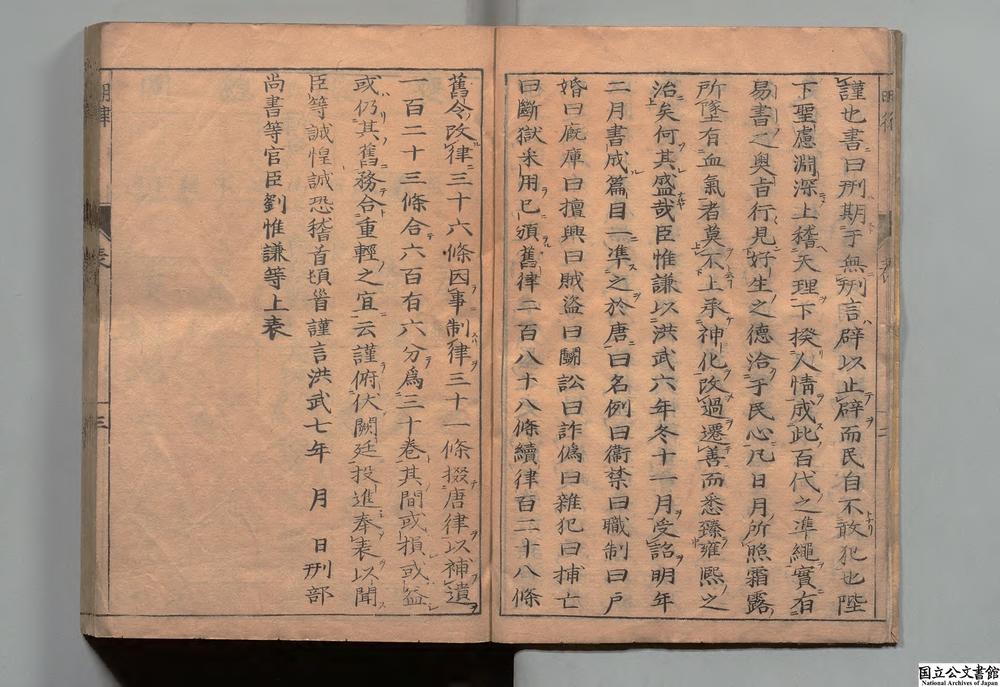 謹也書曰刑期于無刑言辟以止辟而民自不敢犯也陛
下聖慮淵深上稽天理下揆人情成此百代之準繩實有
易書之奥旨行見好生之德洽于民心凡日月所照霜露
所墜有血氣者莫不上承神化改過遷善而悉臻雍熈之
治矣何其盛哉臣惟謙以洪武六年冬十一月受詔明年
二月書成篇目一準之於唐曰名例曰衞禁曰職制曰戶
婚曰廐庫曰擅興曰賊盜曰鬭訟曰詐僞曰雜犯曰捕亡
曰斷獄采用已頒舊律二百八十八條續律百二十八條
舊令改律三十六條因事制律三十一條掇唐律以補遺
一百二十三條合六百有六分爲三十卷其間或損或益
或仍其舊務合重輕之宜云謹俯伏闕廷投進奉表以聞
臣等誠惶誠恐稽首頓首謹言洪武七年 月 日刑部
尚書等官臣劉惟謙等上表
明律
表
三
国立公文書館
National Archives of Japan